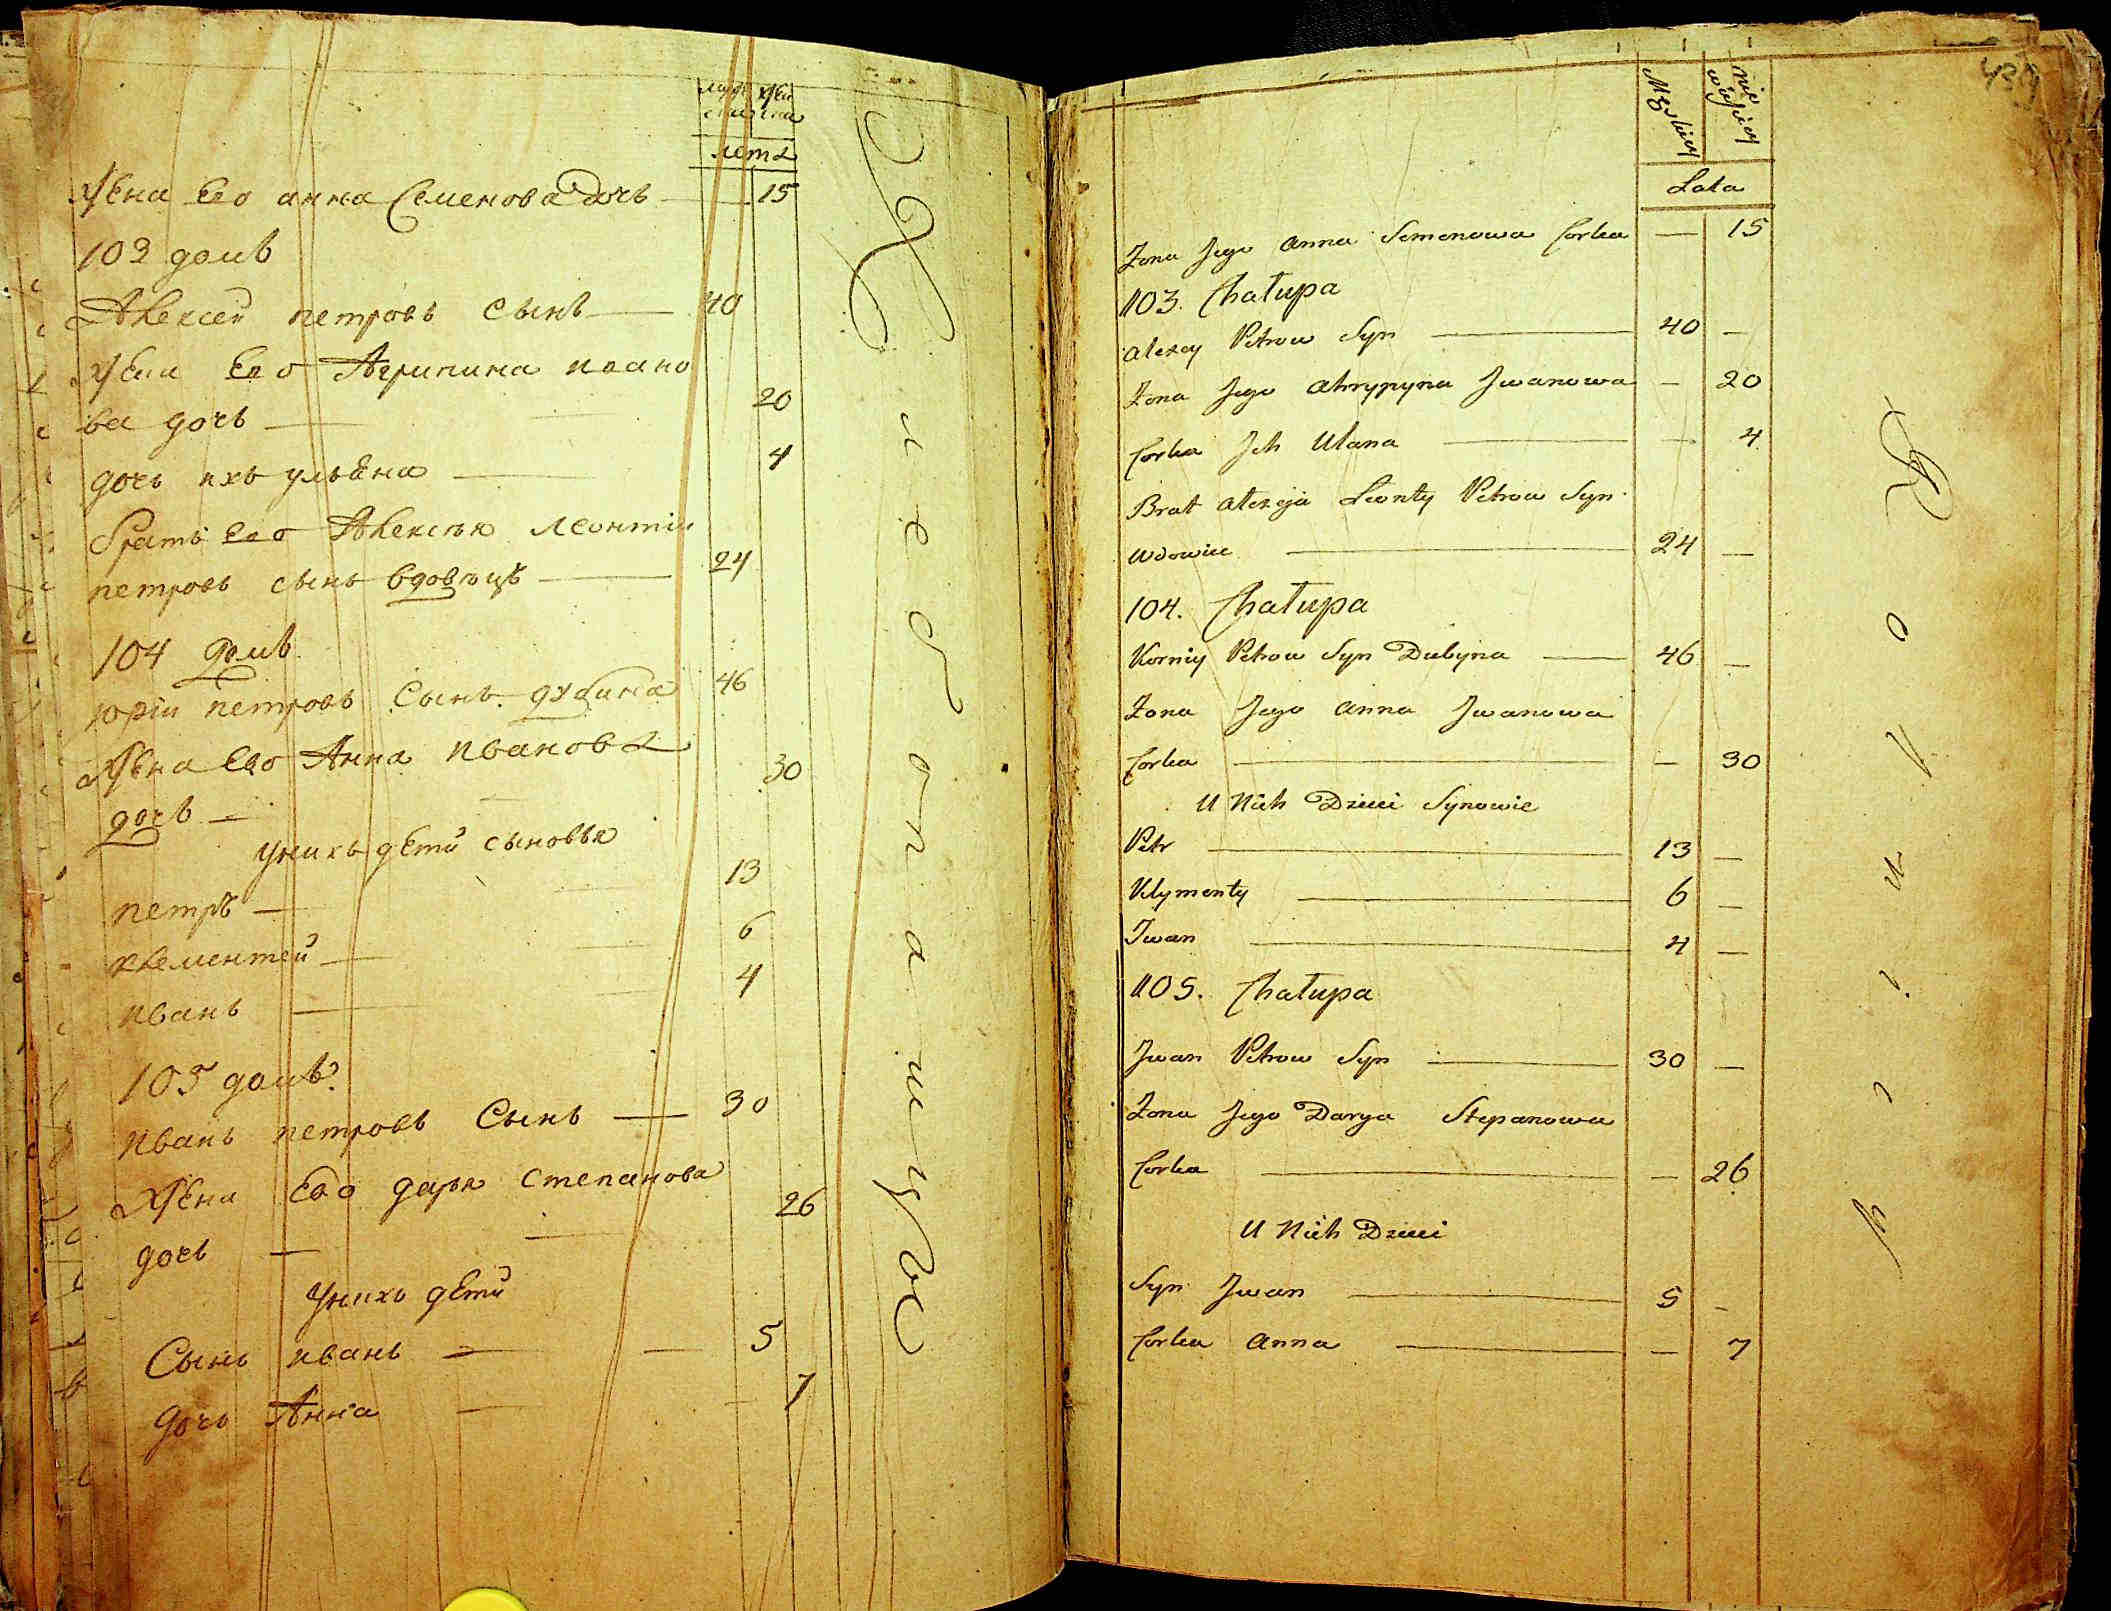 лета
жена его анна Семенова дочь 15
103 домъ
Алексей петровъ сынъ 40
жена его Агрипина ивано
ва дочь 20
дочь ихъ ульяна 4
братъ его Алексѣя леонтiи
петровъ сынъ вдовѣцъ 24
104 домъ
юрiи петровъ сынъ дубина 46
жена его Анна иванова
дочь 30
у нихъ дети сыновья
петръ 13
клементей 6
иванъ 4
105 домъ
иванъ петровъ сынъ 30
жена его дарья степанова
дочь 26
у нихъ дети
Сынъ иванъ 5
дочь Анна 7
439
Męskiey
niewieściey
Lata
Zona Jego Anna Semenowa Corka — 15
103. Chałupa
Alexey Petrow Syn 40 —
Zona Jego Ahrypyna Jwanowa — 20
Corka Jch Ulana — 4
Brat Alexeja Leonty Petrow Syn
wdowiec 24 —
104. Chałupa
Korniy Petrow Syn Dubyna 46 —
Zona Jego Anna Jwanowa
Corka — 30
U Nich Dzieci Synowie
Petr 13 —
Klymenty 6 —
Jwan 4 —
105. Chałupa
Jwan Petrow Syn 30 —
Zona Jego Darya Stepanowa
Corka — 26
U Nich Dzieci
Syn Jwan 5 —
Corka Anna — 7